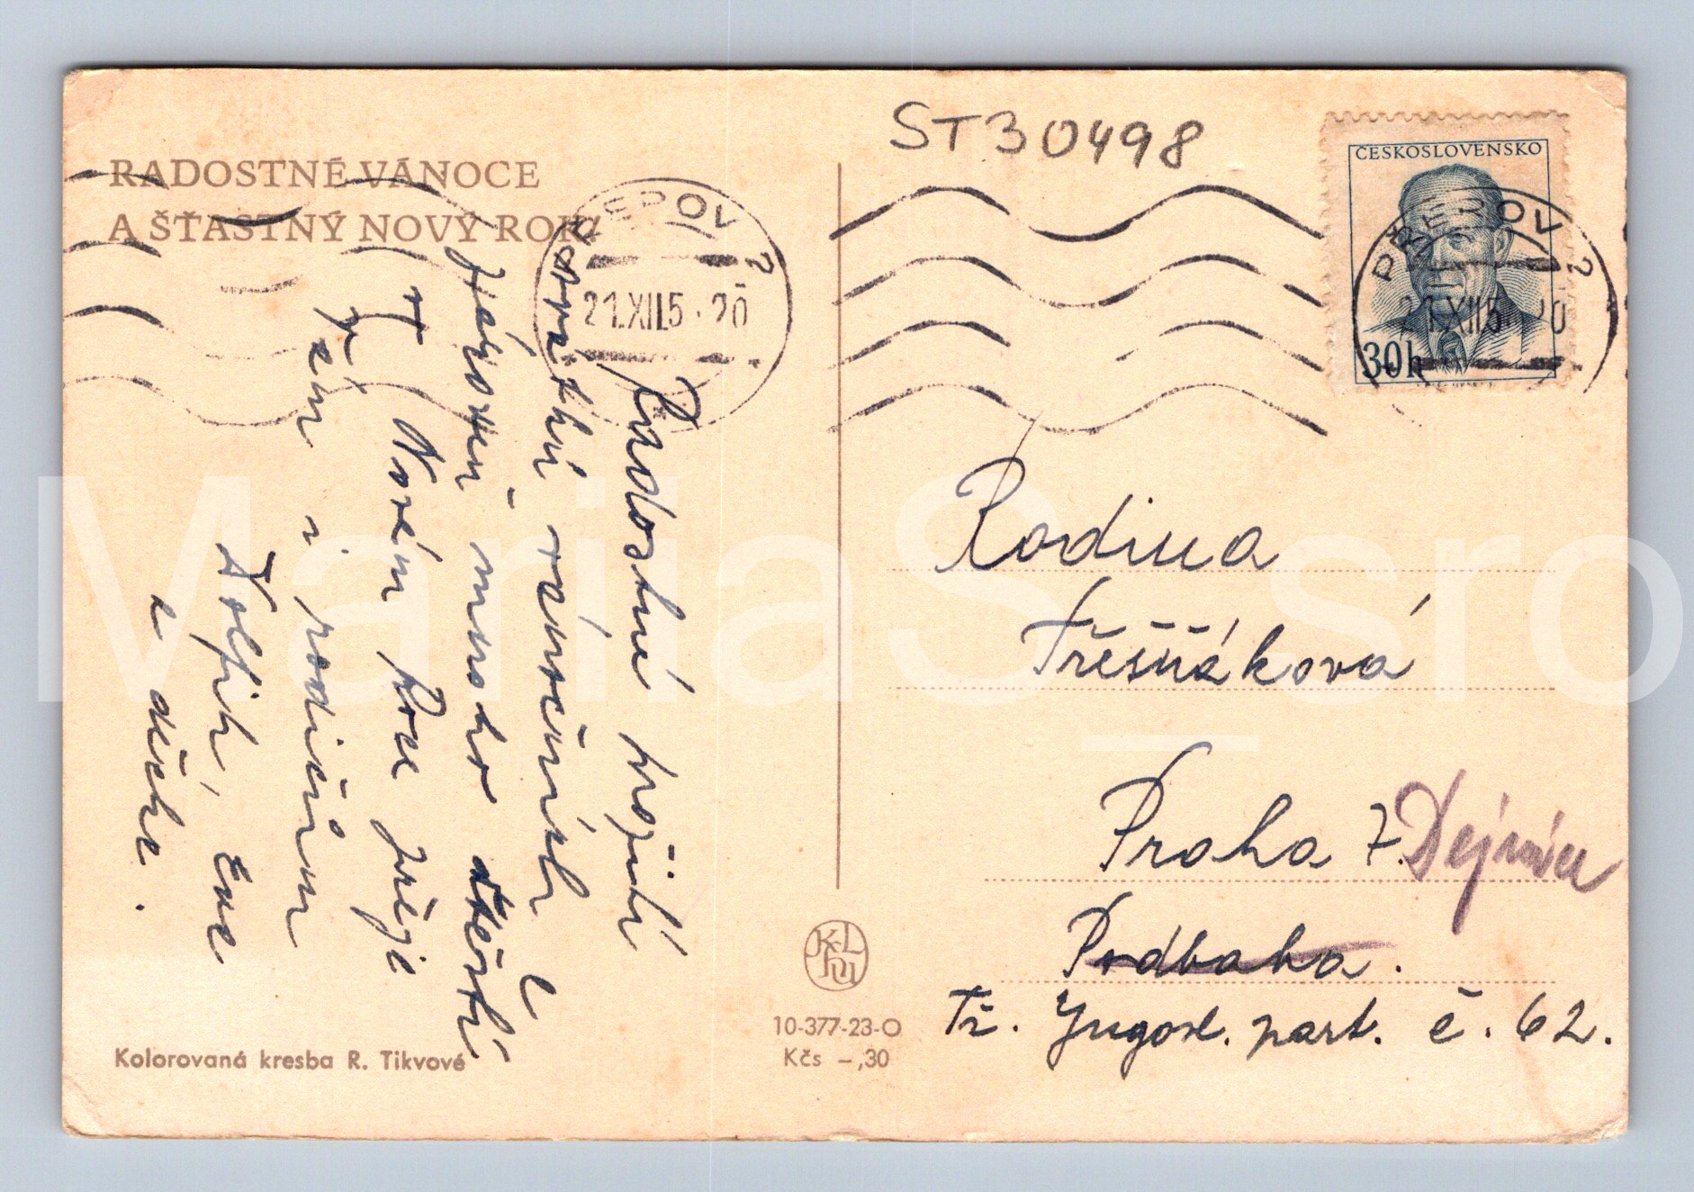 ST30498
RADOSTNÉ VÁNOCE
A ŠŤASTNÝ NOVÝ ROK
ČESKOSLOVENSKO
30h
PŘEROV 2
21.XII.5 · 20
PŘEROV 2
21.XII.5 20
Radostné prožití
svátků vánočních
hodně mnoho štěstí
v Novém Roce přeje
Vám i rodičům
Dolfih, Eva
a dětke.
Rodina
Třešňáková
Praha 7. Dejvice
Podbaba.
Tř. Jugosl. part. č. 62.
10-377-23-O
Kčs –,30
Kolorovaná kresba R. Tikvové
MarijaS_sro